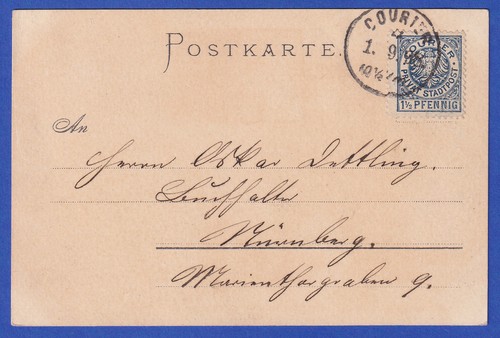 COURIER
1. 9. 
POSTKARTE.
COURIER
PRIVAT STADTPOST
1½ PFENNIG
An
Herrn Oskar Dettling.
Buchhalter
Nürnberg.
Marienthorgraben 9.